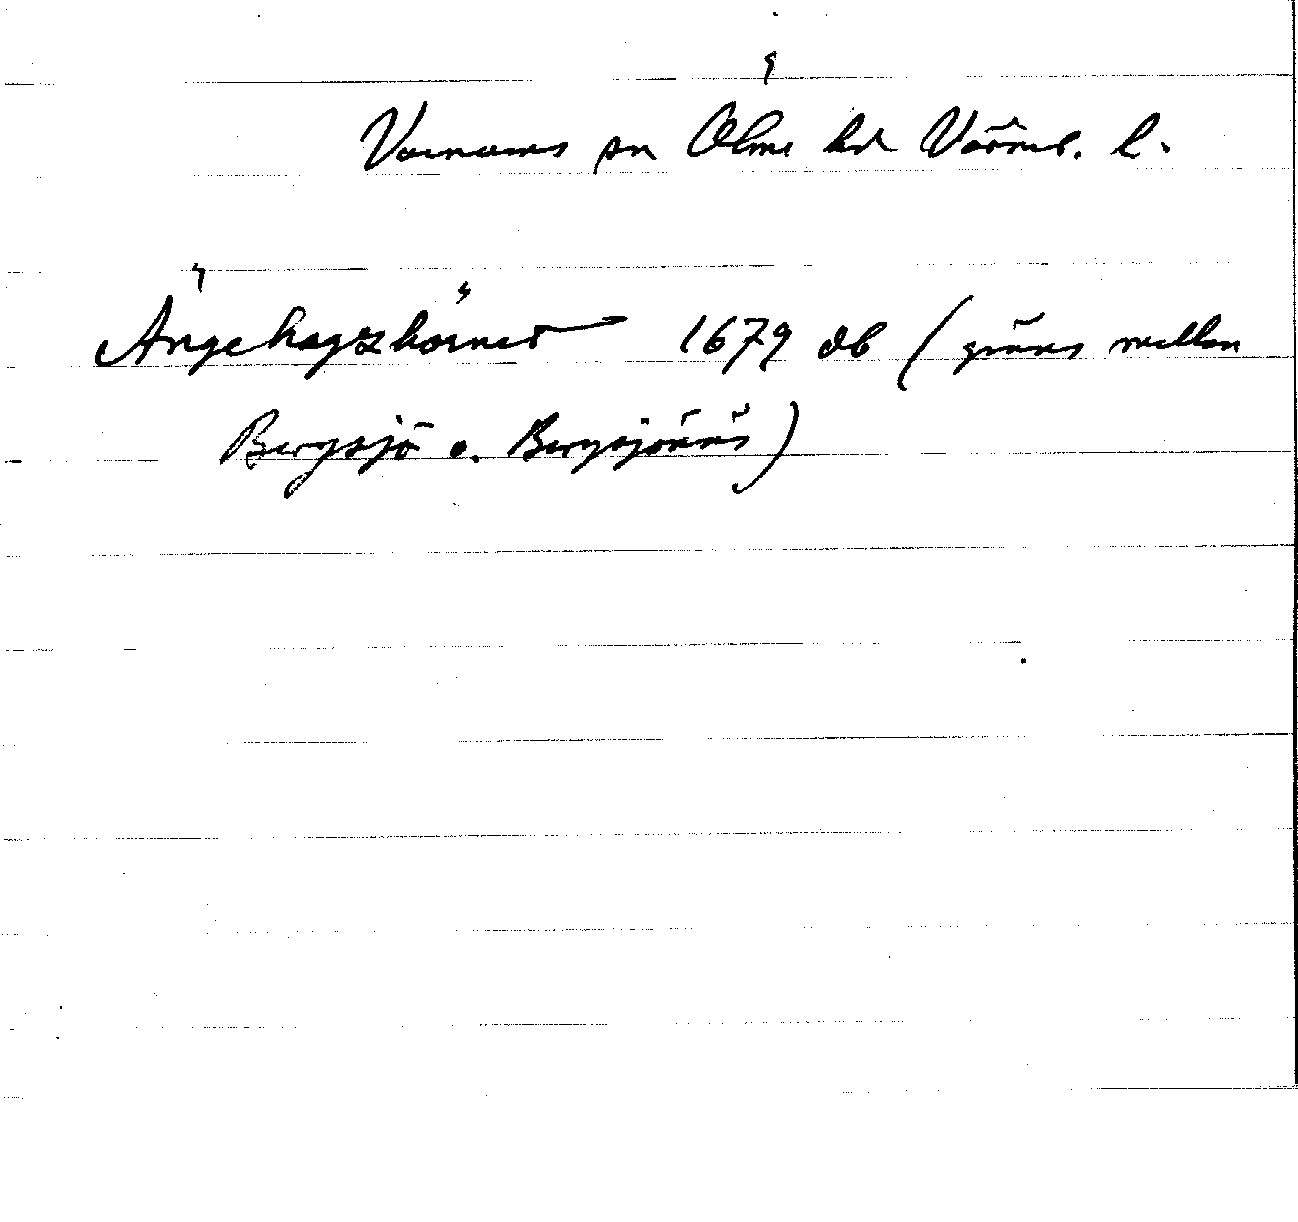 Varnums sn Ölme hd Värml. l.
Ängehagzhörnet 1679 db (gräns mellan
Bergsjö o. Bergsjönäs)